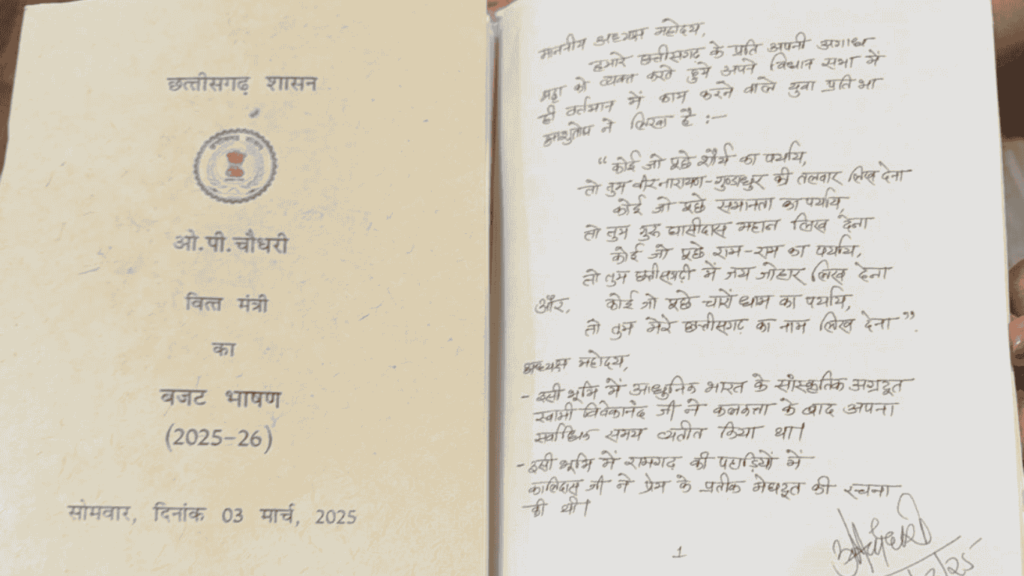 छत्तीसगढ़ शासन
ओ.पी.चौधरी
वित्त मंत्री
का
बजट भाषण
(2025-26)
सोमवार, दिनांक 03 मार्च, 2025
माननीय अध्यक्ष महोदय,
हमारे छत्तीसगढ़ के प्रति अपनी अगाध
श्रद्धा को व्यक्त करते हुये अपने विधान सभा में
ही वर्तमान में काम करने वाले युवा प्रतिभा
आशुतोष ने लिखा है :-
“कोई जो पूछे शौर्य का पर्याय,
तो तुम वीरनारायण-गुण्डाधुर की तलवार लिख देना
कोई जो पूछे समानता का पर्याय,
तो तुम गुरू घासीदास महान लिख देना
कोई जो पूछे राम-राम का पर्याय,
तो तुम छत्तीसगढ़ी में जय जोहार लिख देना
और, कोई जो पूछे चारों धाम का पर्याय,
तो तुम मेरे छत्तीसगढ़ का नाम लिख देना”.
अध्यक्ष महोदय,
- इसी भूमि में आधुनिक भारत के सांस्कृतिक अग्रदूत
स्वामी विवेकानंद जी ने कलकत्ता के बाद अपना
सर्वाधिक समय व्यतीत किया था।
- इसी भूमि में रामगढ़ की पहाड़ियों में
कालिदास जी ने प्रेम के प्रतीक मेघदूत की रचना
की थी।
1